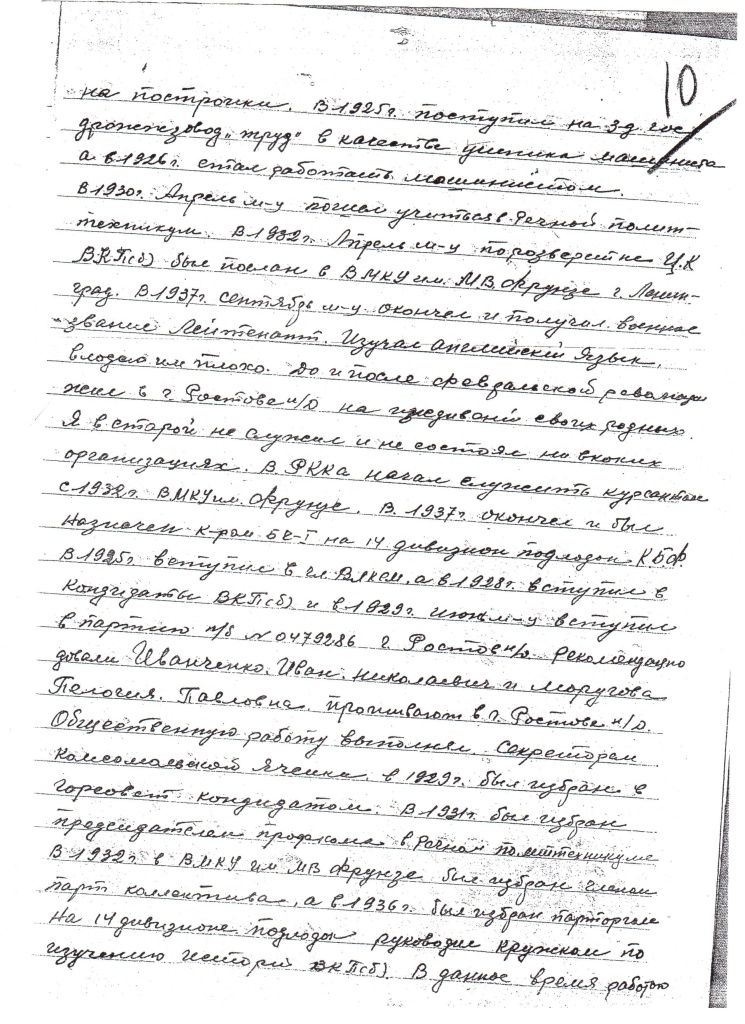 10
на постройки. В 1925г. поступил на 3д. гос
дрожжзавод „Труд" в качестве ученика машиниста
а в 1926г. стал работать машинистом.
В 1930г. Апрель м-ц послан учиться в Речной полит-
техникум. В 1932г. Апрель м-ц по розверстке Ц.К
ВКП(б) был послан в ВМКУ им. М.В. Фрунзе г. Ленин-
град. В 1937г. сентябрь м-ц окончел и получил военное
звание Лейтенант. Изучал английский язык,
владею им плохо. До и после февральской революции
жил в г. Ростове н/Д на иждивении своих родных.
Я в старой не служил и не состоял ни в коких
организациях. В РККА начал служить курсантом
с 1932г. ВМКУ им. Фрунзе. В 1937г. окончел и был
назначен к-ром БЧ-I на 14 дивизион подлодок КБФ.
В 1925г. вступил в чл. ВЛКСМ, а в 1928г. вступил в
кондидаты ВКП(б) и в 1929г. июнь м-ц вступил
в партию п/б N 0479286 г. Ростов н/Д. Рекомендацию
довали Иванченко. Иван. Николаевич и Моругова
Пелогия. Павловна. проживают в г. Ростове н/Д.
Общественную работу выполнял. Секретарем
Комсомольской ячейки. в 1929г. был избран в
горсовет кондидатом. В 1931г. был избран
председателем профкома в Речном политтехникуме
В 1932г. в ВМКУ им МВ Фрунзе был избран членом
парт коллектива, а в 1936г. был избран парторгом
На 14 дивизионе подлодок руководил кружком по
изучению истори ВКП(б). В данное время работою